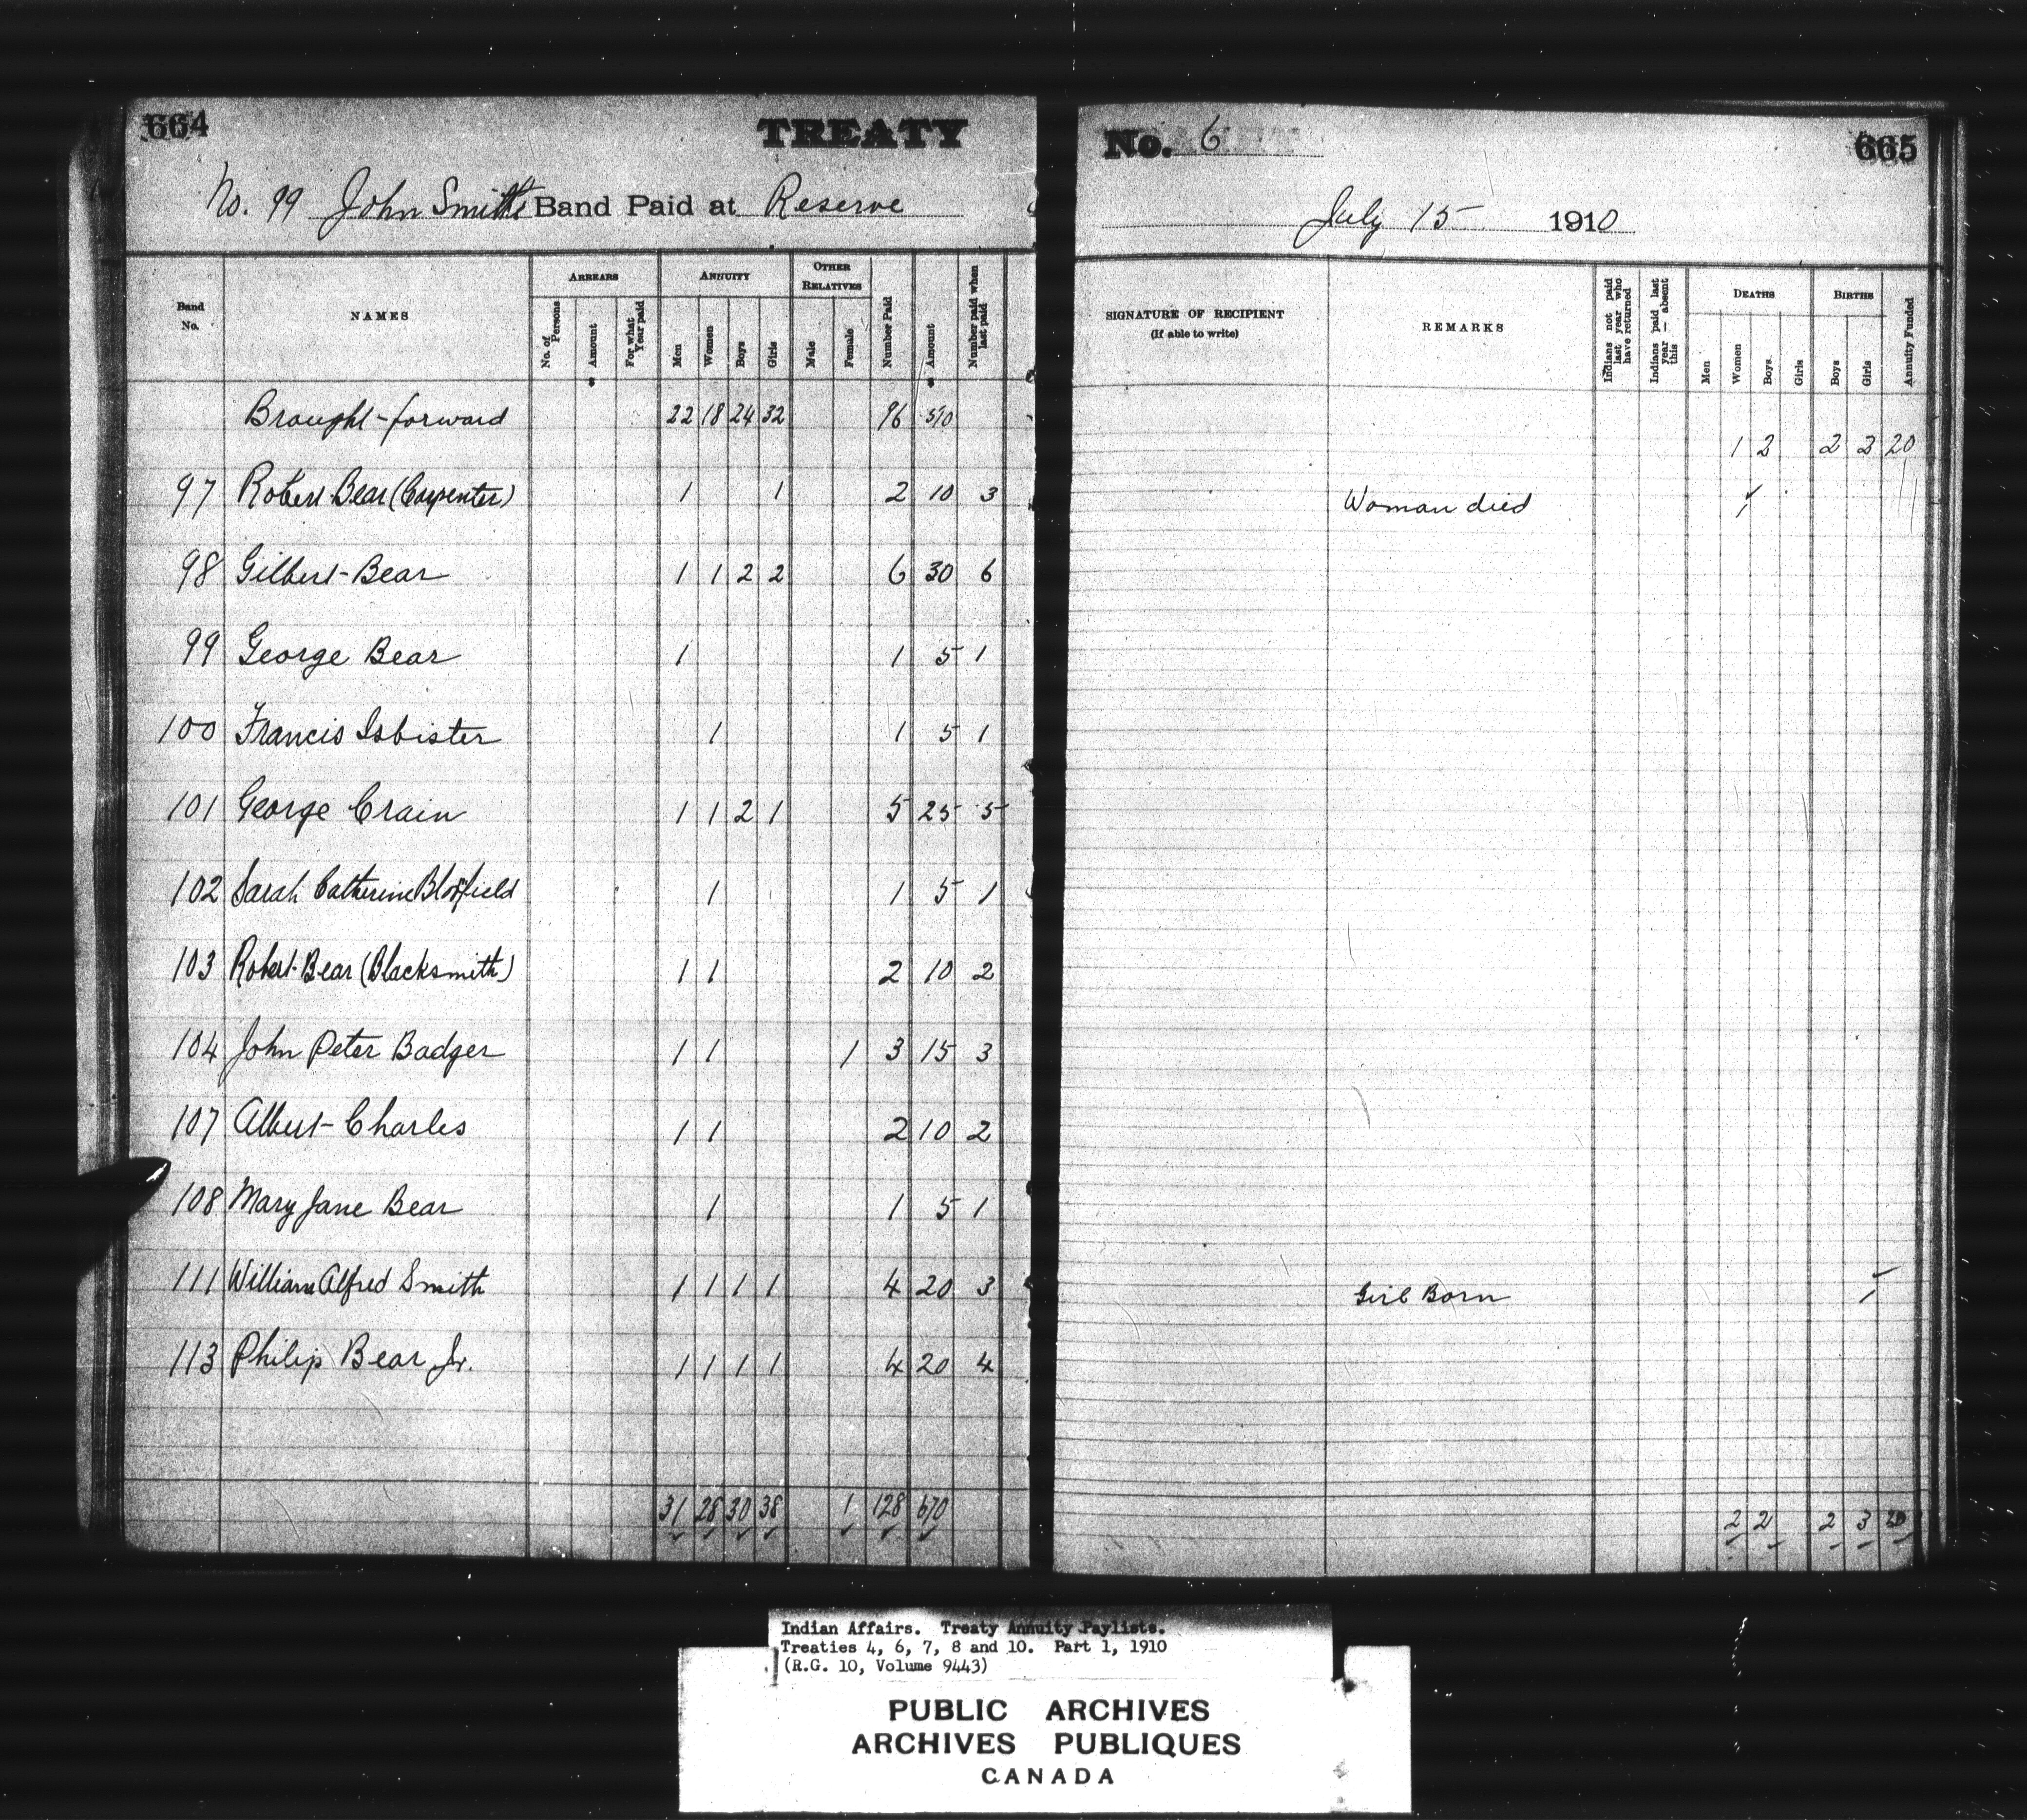 664 TREATY No. 6 665
No. 99 John Smith's Band Paid at Reserve July 15 1910
Band No. NAMES ARREARS No. of Persons Amount For what Year paid ANNUITY Men Women Boys Girls OTHER RELATIVES Male Female Number Paid Amount Number paid when last paid SIGNATURE OF RECIPIENT (If able to write) REMARKS Indians not paid last year who have returned Indians paid last year — absent this DEATHS Men Women Boys Girls BIRTHS Boys Girls Annuity Funded
Brought-forward 22 18 24 32 96 510 1 2 2 2 20
97 Robert Bear (Carpenter) 1 1 2 10 3 Woman died 1
98 Gilbert Bear 1 1 2 2 6 30 6
99 George Bear 1 1 5 1
100 Francis Isbister 1 1 5 1
101 George Crain 1 1 2 1 5 25 5
102 Sarah Catherine 1 1 5 1
103 Robert Bear (Blacksmith) 1 1 2 10 2
104 John Peter Badger 1 1 1 3 15 3
107 Albert Charles 1 1 2 10 2
108 Mary Jane Bear 1 1 5 1
111 William Alfred Smith 1 1 1 1 4 20 3 Girl Born 1
113 Philip Bear Jr. 1 1 1 1 4 20 4
31 28 30 38 1 128 670 2 2 2 3 20
Indian Affairs. Treaty Annuity Paylists.
Treaties 4, 6, 7, 8 and 10. Part 1, 1910
(R.G. 10, Volume 9443)
PUBLIC ARCHIVES
ARCHIVES PUBLIQUES
CANADA